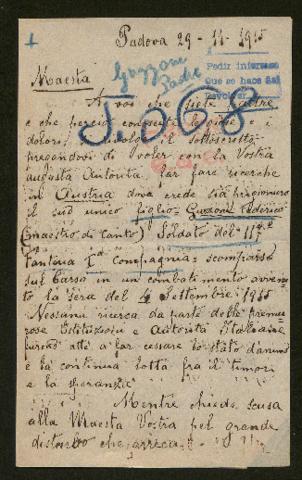 1
Padova 29-11-1915
Pedir intereses
Que se haca
Devolver
Maestà
Guzzoni
Padre
J. 568
A voi che siete Padre
e che perciò conoscete le gioie e i
dolori, il sottoscritto
pregandovi di voler con la Vostra
augusta Autorità far fare ricerche
in Austria dove crede sia prigioniero
il suo unico figlio Guzzoni Federico
(maestro di Canto) Soldato del 11°
fanteria 1a Compagnia scomparso
sul Carso in un combattimento avvenu-
to la sera del 4 Settembre 1915
Nessuna ricerca da parte delle premu-
rose Istituzioni e Autorità Italiane
atti a far cessare lo stato d'animo
e la continua lotta fra il timori
e la speranzie
Mentre chiede scusa
alla Maestà Vostra pel grande
disturbo che arreca